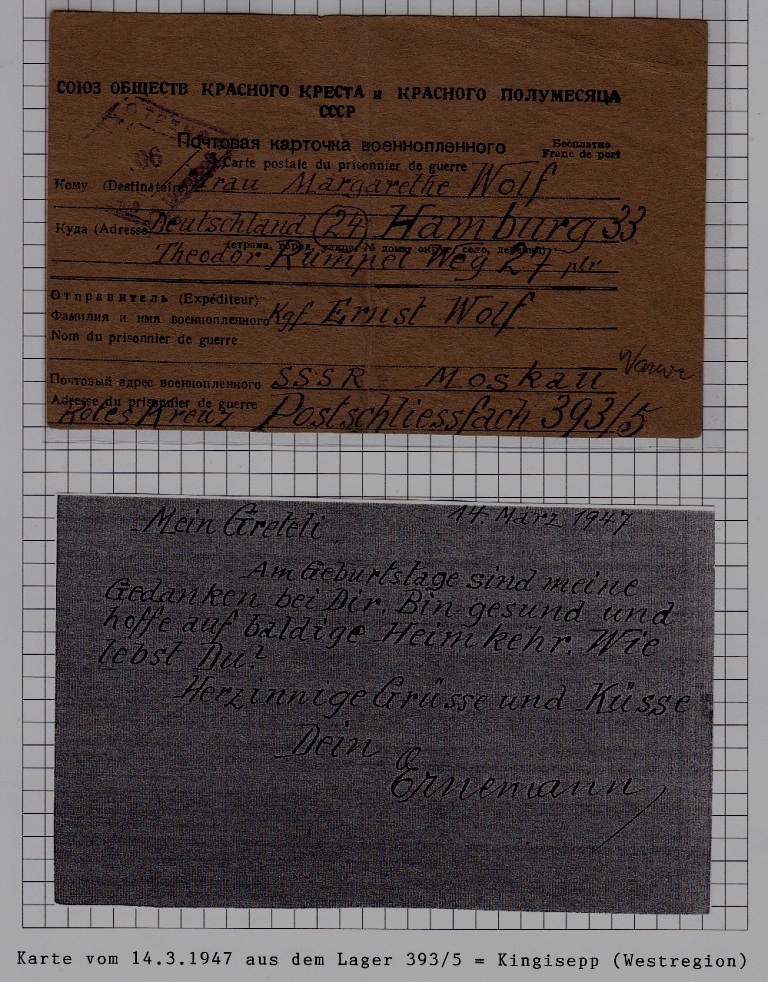 СОЮЗ ОБЩЕСТВ КРАСНОГО КРЕСТА и КРАСНОГО ПОЛУМЕСЯЦА
СССР
Почтовая карточка военнопленного
Бесплатно
Franc de port
Carte postale du prisonnier de guerre
Кому (Destinataire) Frau Margarethe Wolf
Куда (Adresse) Deutschland (24) Hamburg 33
(страна, город, улица, № дома, округ, село, деревня)
Theodor Rumpel Weg 27 ptr
Отправитель (Expéditeur)
Фамилия и имя военнопленного Kgf. Ernst Wolf
Nom du prisonnier de guerre
Почтовый адрес военнопленного SSSR Moskau
Adresse du prisonnier de guerre
Rotes Kreuz Postschliessfach 393/5
14. März 1947
Mein Greteli
Am Geburtstage sind meine
Gedanken bei Dir. Bin gesund und
hoffe auf baldige Heimkehr. Wie
lebst Du?
Herzinnige Grüsse und Küsse
Dein
Ernemann
Karte vom 14.3.1947 aus dem Lager 393/5 = Kingisepp (Westregion)